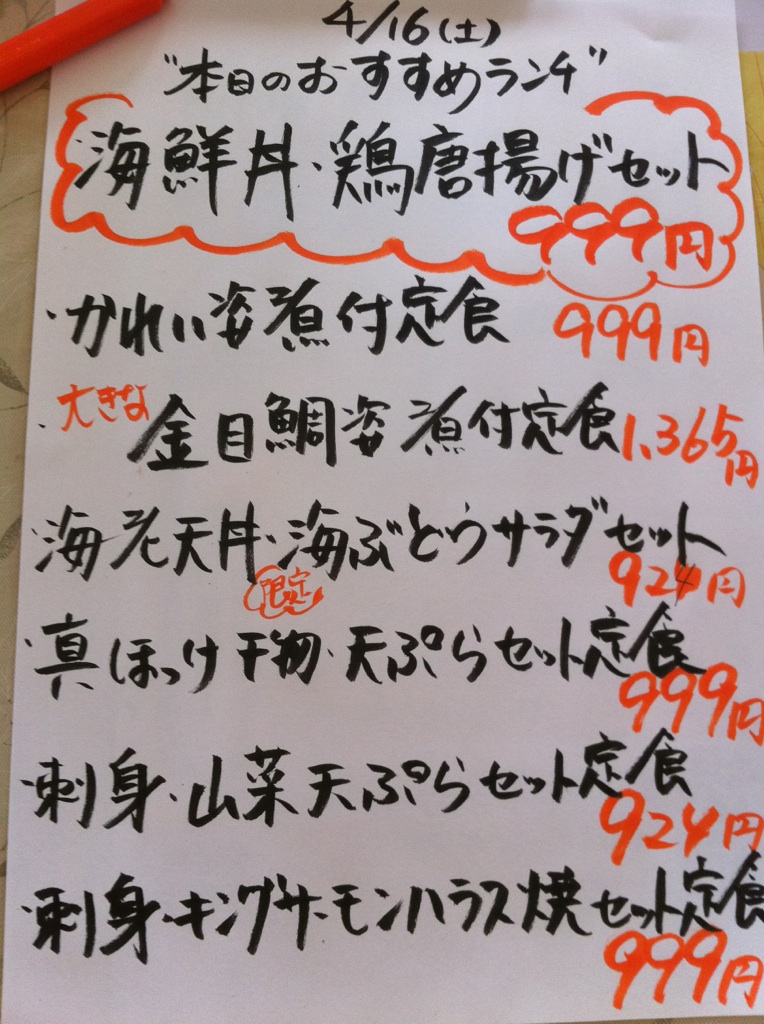 4/16(土)
"本日のおすすめランチ"
海鮮丼・鶏唐揚げセット
999円
・かれい姿煮付定食 999円
・大きな金目鯛姿煮付定食 1,365円
・海老天丼・海ぶどうサラダセット
924円
限定
・真ほっけ干物・天ぷらセット定食
999円
・刺身・山菜天ぷらセット定食
924円
・刺身・キングサーモンハラス焼セット定食
999円